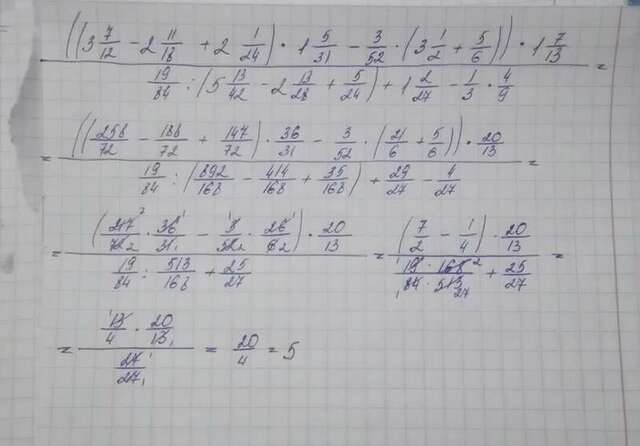 ((3 7/12 - 2 11/18 + 2 1/24) · 1 5/31 - 3/52 · (3 1/2 + 5/6)) · 1 7/13
19/84 : (5 13/42 - 2 13/28 + 5/24) + 1 2/27 - 1/3 · 4/9 =
= ((258/72 - 188/72 + 147/72) · 36/31 - 3/52 · (21/6 + 5/6)) · 20/13
19/84 : (892/168 - 414/168 + 35/168) + 29/27 - 4/27 =
= (217/72 · 36/31 - 3/52 · 26/6) · 20/13 = (7/2 - 1/4) · 20/13
19/84 : 513/168 + 25/27 19 · 168/84 · 513 + 25/27 =
= 13/4 · 20/13
27/27 = 20/4 = 5